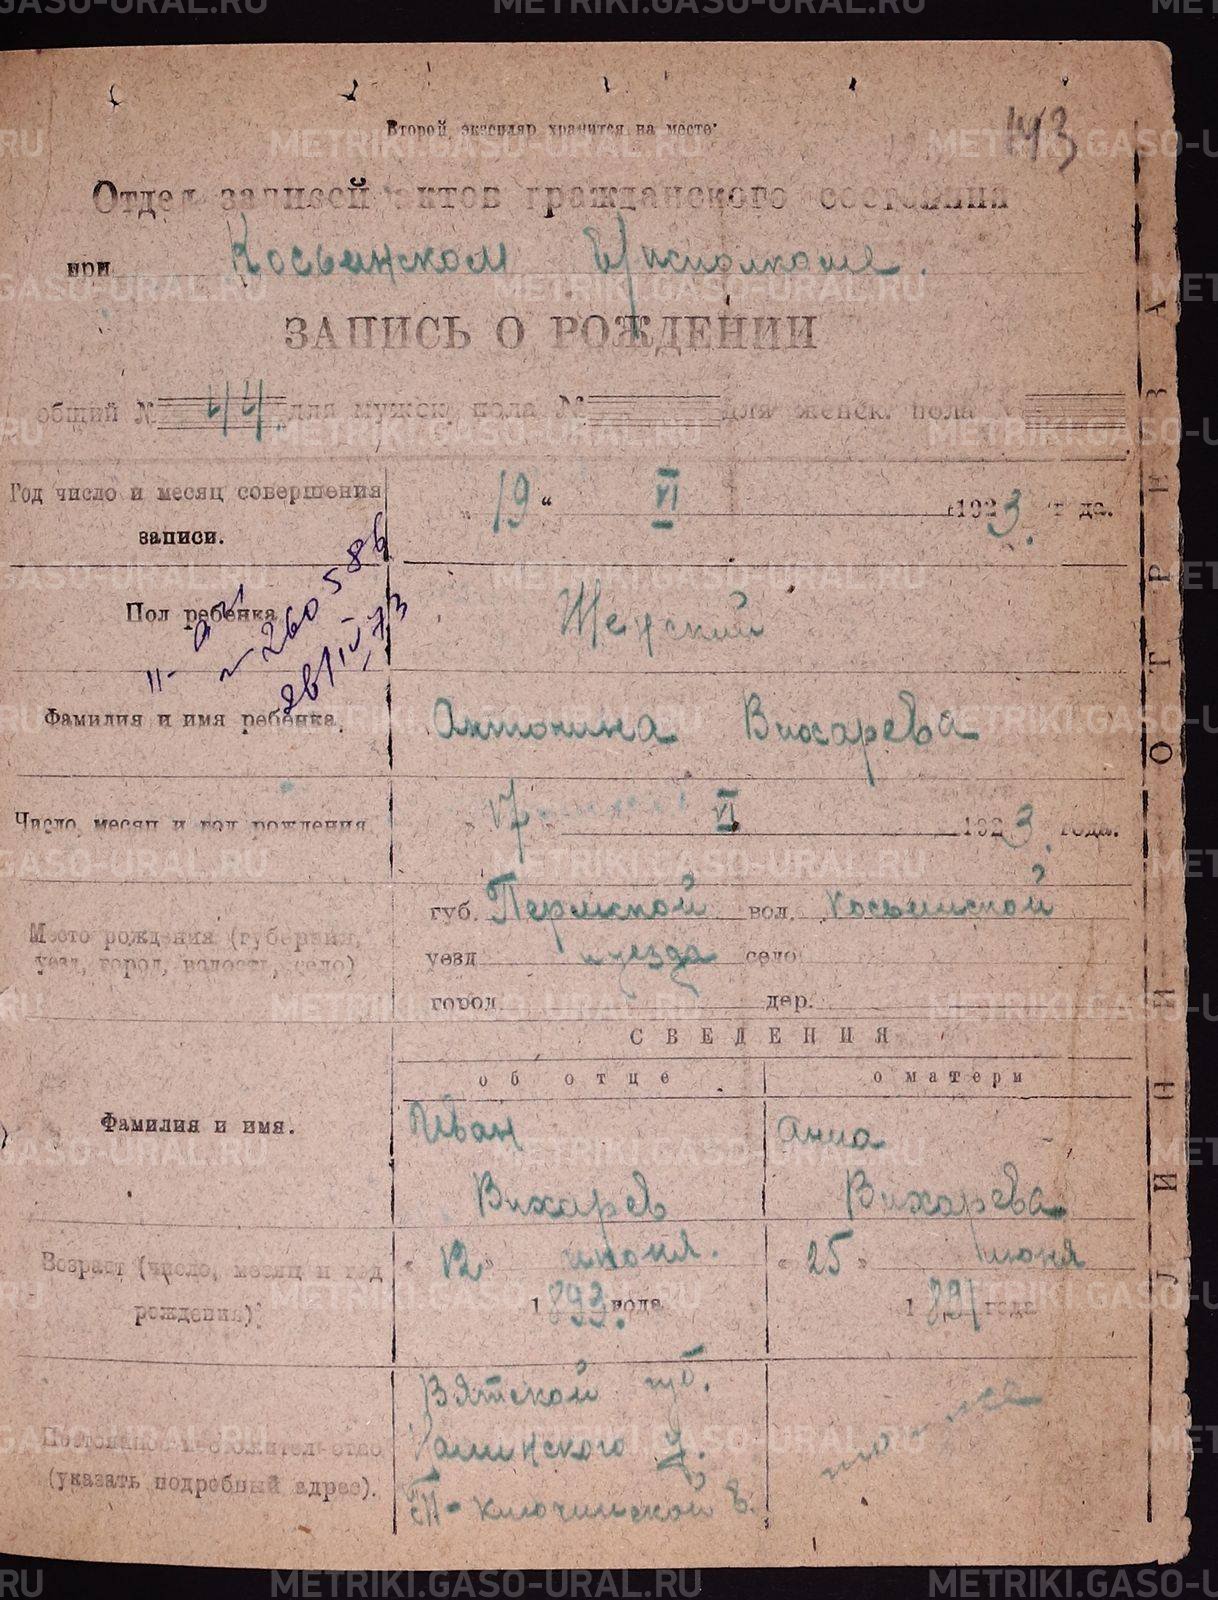 143
Второй экземпляр хранится на месте.
Отдел записей актов гражданского состояния
при Косьинском Исполкоме.
ЗАПИСЬ О РОЖДЕНИИ
общий № 44. для мужск. пола № для женск. пола №
Год число и месяц совершения записи.
"19" VI 1923. года.
Пол ребенка
Женский
II-А И
№ 260586
26/IV-73
Фамилия и имя ребенка
Антонина Вихарева
Число, месяц и год рождения
"17" VI 1923. года.
Место рождения (губерния, уезд, город, волость, село)
губ. Пермской вол. Косьинской
уезд уезда село
город дер.
СВЕДЕНИЯ
об отце о матери
Фамилия и имя.
Иван Анна
Вихарев Вихарева
Возраст (число, месяц и год рождения)
"12" июня. "25" июня
1893. года 1891 года
Постоянное местожительство (указать подробный адрес).
Вятской губ. то же
у.
в.
ЛИНИЯ ОТРЕЗА
METRIKI.GASO-URAL.RU